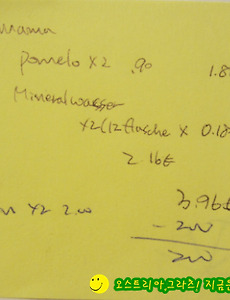 pomelo x2 .90 1.8
Mineralwasser
x2(12 flasche x 0.18
2.16€
3.96€
x2 2.00
- 200
200
오스트리아,그라츠! 지금은